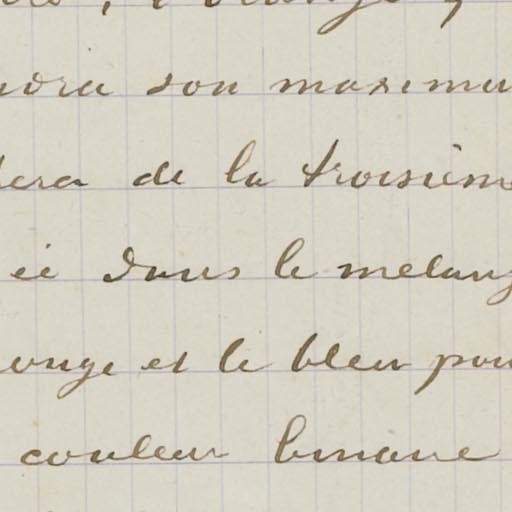 ndra son maximu
dera de la troisième
ée dans le melang
ouge et le bleu pou
couleur binaire